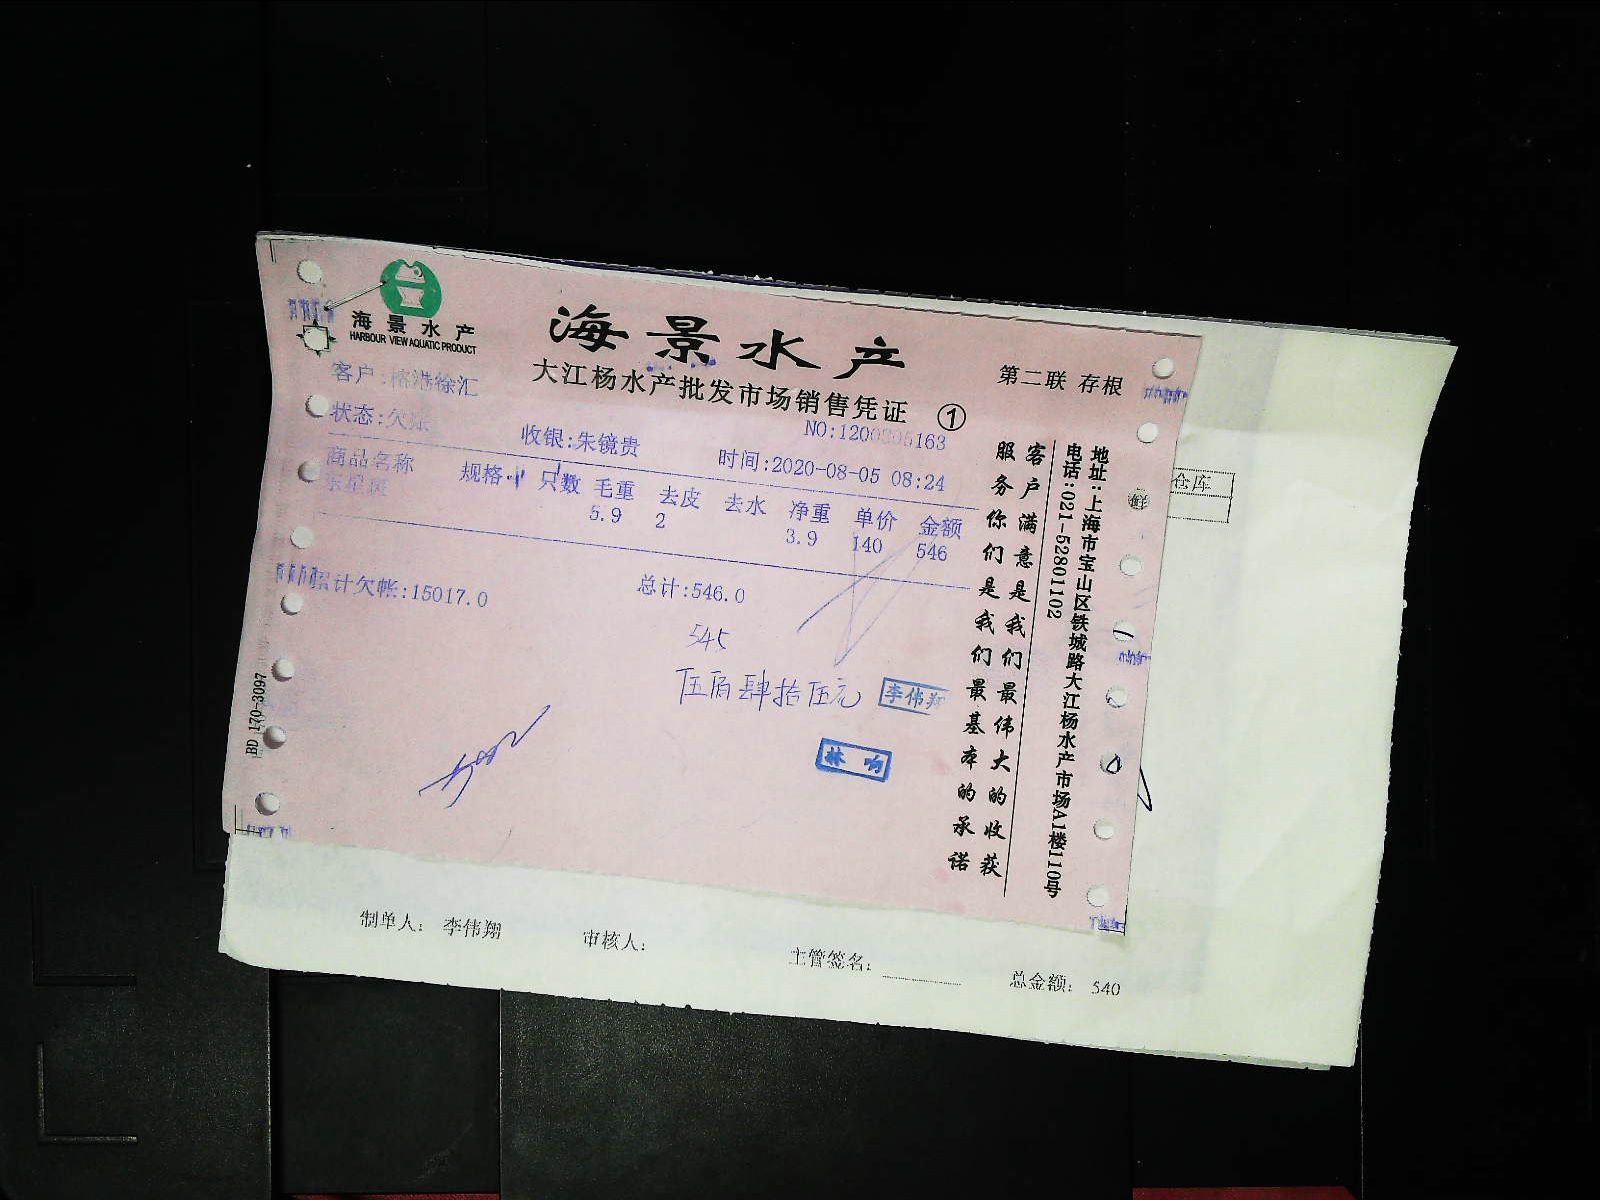 海景水产
HARBOUR VIEW AQUATIC PRODUCT
海景水产
大江杨水产批发市场销售凭证 ①
第二联 存根
客户:榕港徐汇
NO:1200805163
状态:欠账
收银:朱镜贵
时间:2020-08-05 08:24
商品名称 规格 只数 毛重 去皮 去水 净重 单价 金额
东星斑 5.9 2 3.9 140 546
累计欠帐:15017.0
总计:546.0
545
伍佰肆拾伍元
李伟翔
林响
客户满意是我们最伟大的收获
服务你们是我们最基本的承诺
地址:上海市宝山区铁城路大江杨水产市场A1楼110号
电话:021-52801102
BD 170-3097
仓库
制单人: 李伟翔
审核人:
主管签名:
总金额: 540